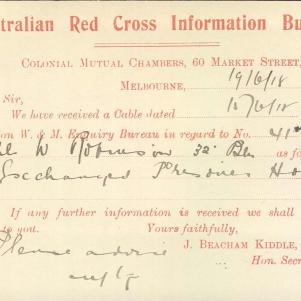 stralian Red Cross Information Bu
COLONIAL MUTUAL CHAMBERS, 60 MARKET STREET,
MELBOURNE, 19/6/18
Sir,
We have received a Cable dated 15/6/18
on W. & M. Enquiry Bureau in regard to No. 41
W Robinson 32 Bn as fo
Exchanged Prisoner Ho
If any further information is received we shall
to you. Yours faithfully,
J. BEACHAM KIDDLE,
Please advise Hon. Secr